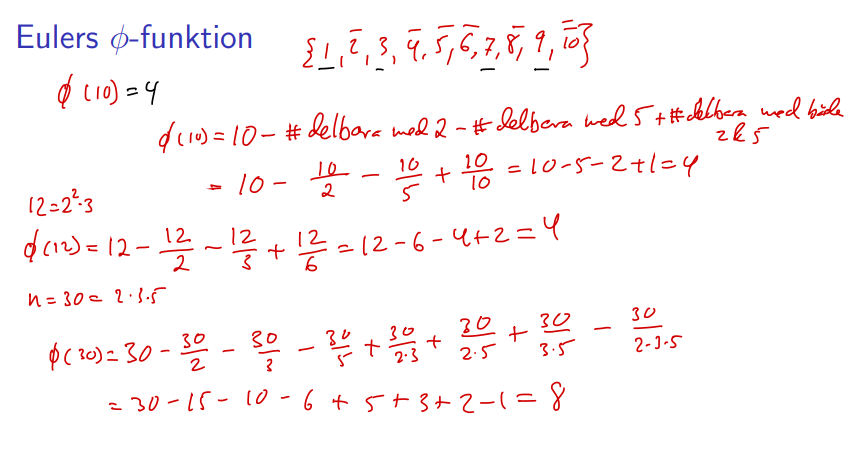 Eulers ϕ-funktion
{1, 2̄, 3, 4̄, 5̄, 6̄, 7, 8̄, 9, 1̄0̄}
ϕ(10) = 4
ϕ(10) = 10 - # delbara med 2 - # delbara med 5 + # delbara med båda 2 & 5
= 10 - 10/2 - 10/5 + 10/10 = 10-5-2+1=4
12=2²·3
ϕ(12) = 12 - 12/2 - 12/3 + 12/6 = 12-6-4+2=4
n=30= 2·3·5
ϕ(30) = 30 - 30/2 - 30/3 - 30/5 + 30/2·3 + 30/2·5 + 30/3·5 - 30/2·3·5
= 30-15-10-6+5+3+2-1=8